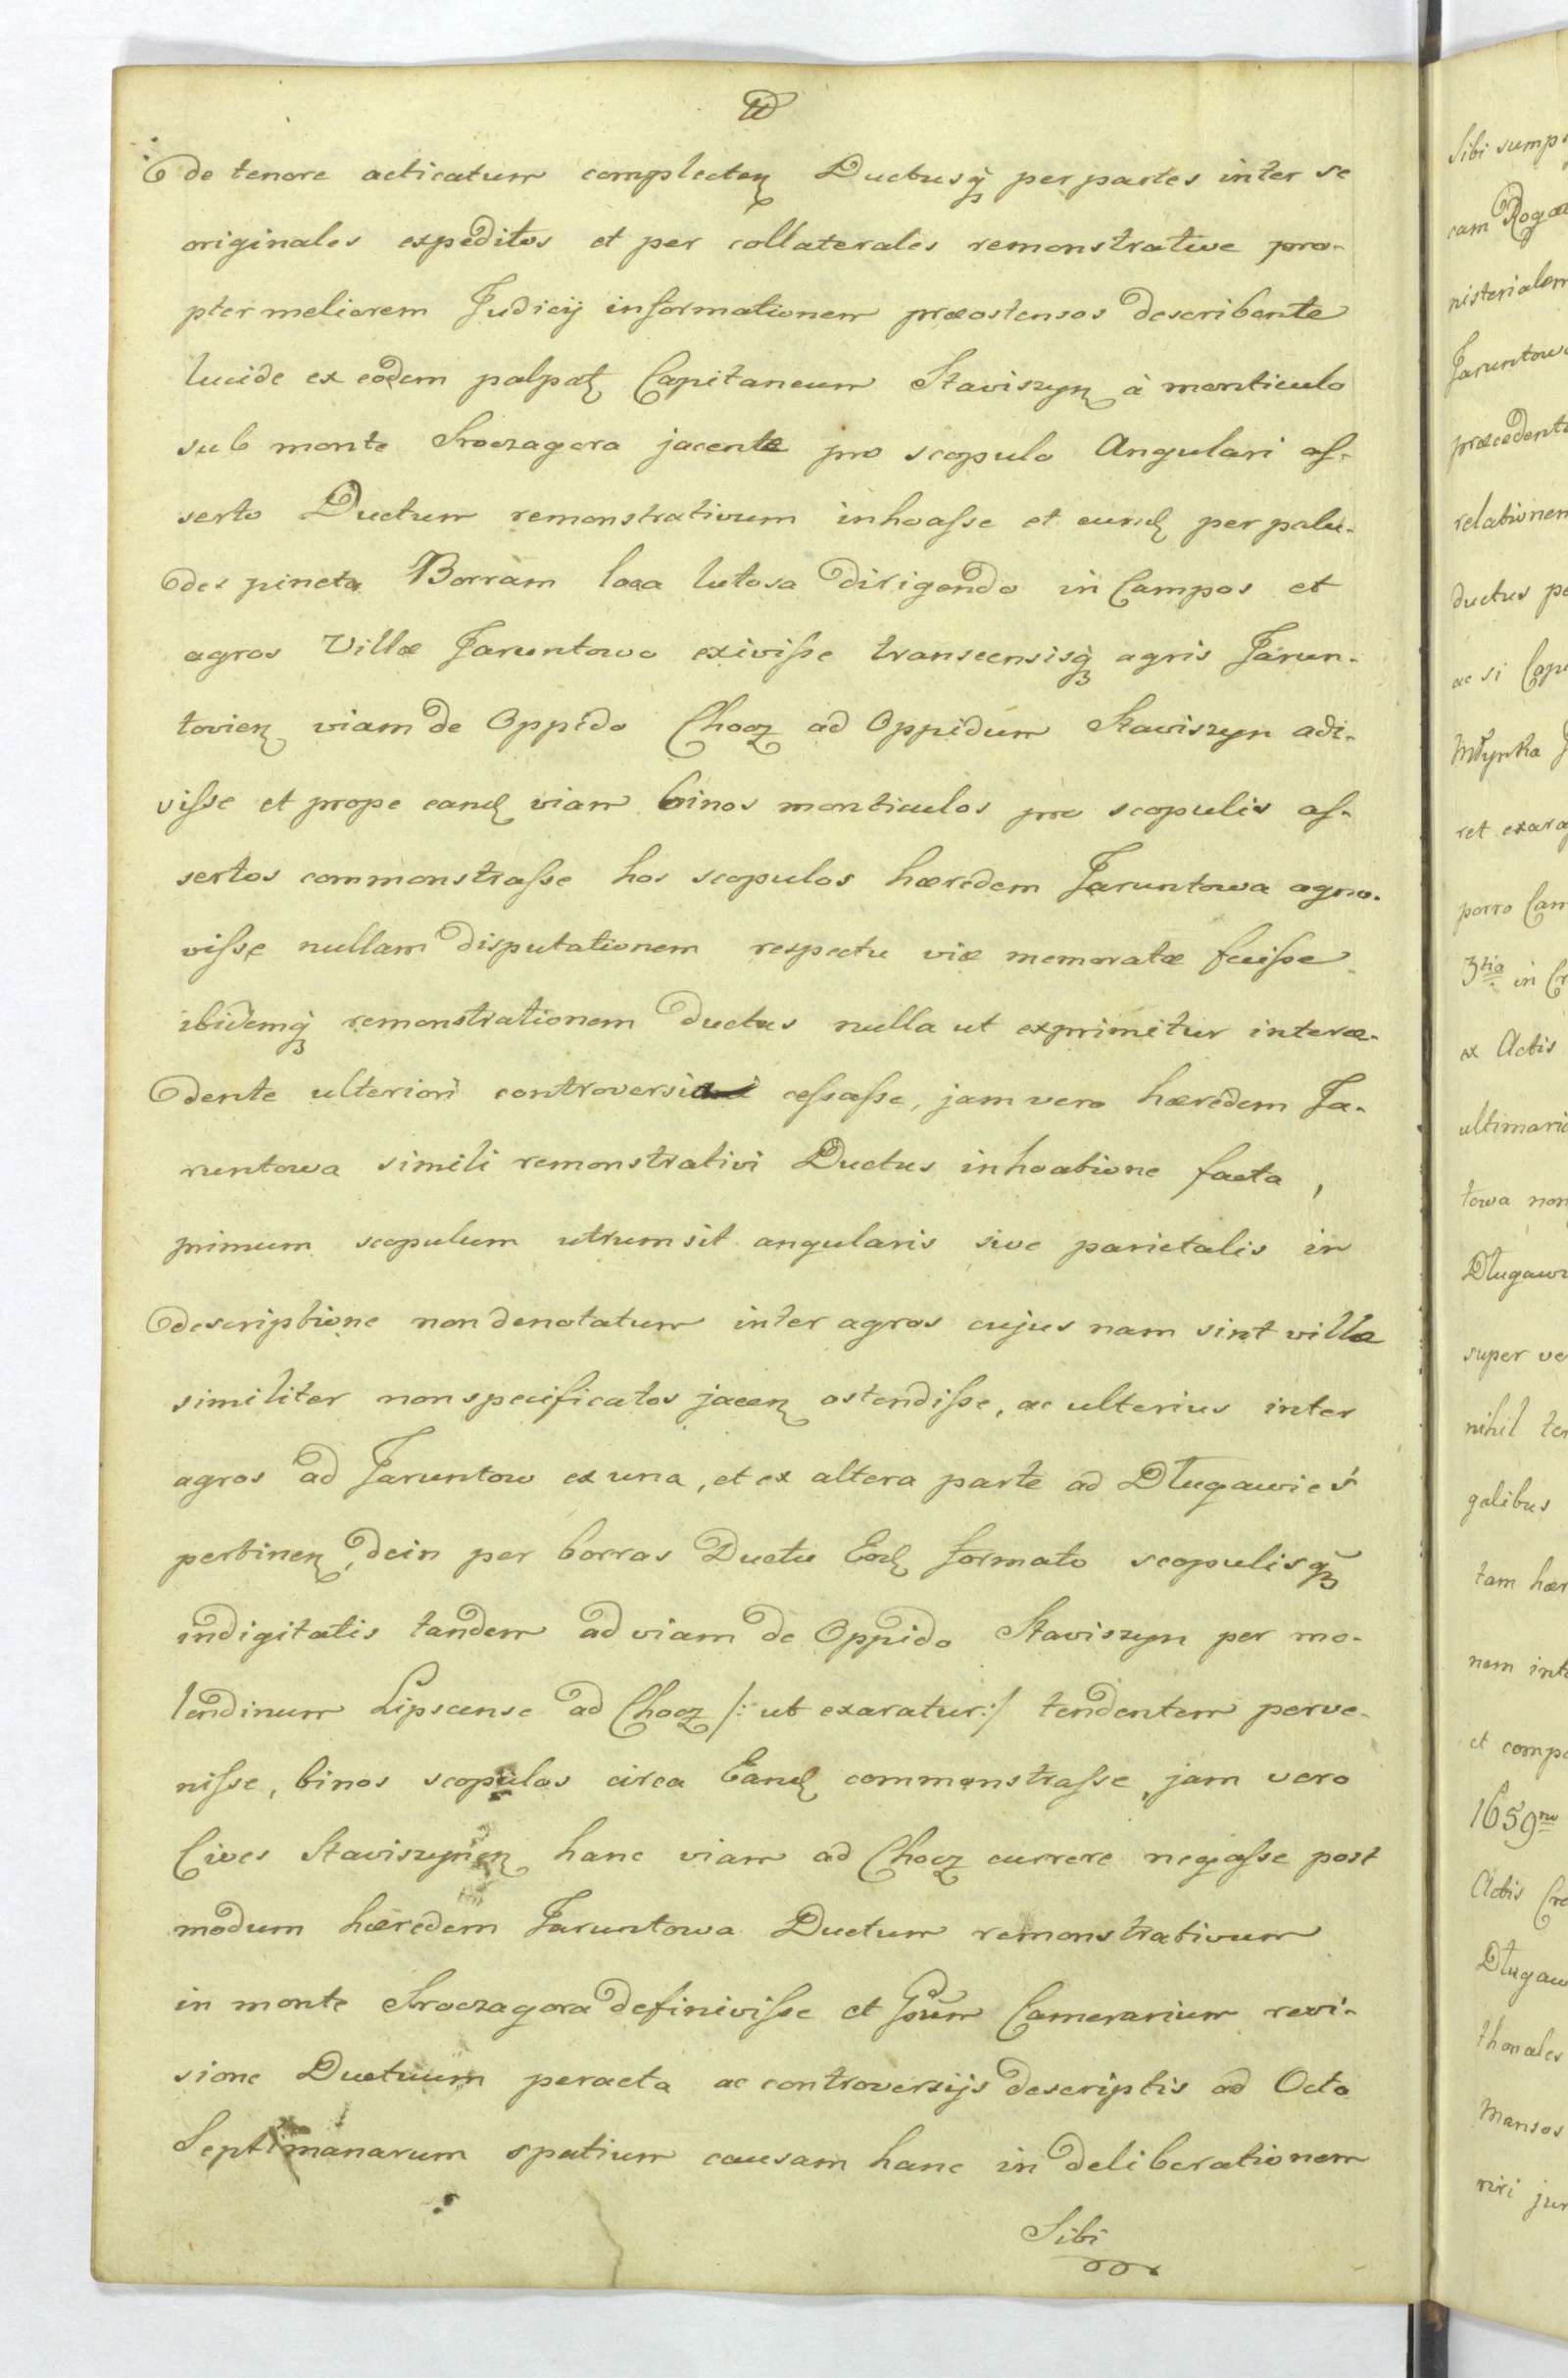 de tenore acticatum complecten Ductusq́ per partes inter se
originales expeditos et per collaterales remonstrative pro-
pter meliorem Judicij informationem præostensos describente
lucide ex eodem palpat Capitaneum Stawiszyn à monticulo
sub monte Sroczagora jacente pro scopulo Angulari as-
serto Ductum remonstrativum inhoasse et eund per palu-
des pineta Borràm loca lutosa dirigendo in Campos et
agros Villæ Jaruntowo exivisse transcensisq́ agris Jarun-
tovien viam de Oppido Chocz ad Oppidum Stawiszyn adi-
visse et prope eand viam binos monticulos pro scopulis as-
sertos commonstrasse hos scopulos hæredem Jaruntowa agno-
visse nullam disputationem respectu viæ memoratæ fuisse
ibidemq́ remonstrationem ductus nulla ut exprimitur interce-
dente ulteriori controversia cessasse, jam vero hæredem Ja-
runtowa simili remonstrativi Ductus inhoatione facta,
primum scopulum utrum sit angularis sive parietalis in
descriptione non denotatum inter agros cujus nam sint villæ
similiter non specificatos jacen ostendisse, ac ulterius inter
agros ad Jaruntow ex una, et ex altera parte ad Długawieś
pertinen, dein per borras Ductu Eod formato scopulisq́
indigitatis tandem ad viam de Oppido Stawiszyn per mo-
lendinum Lipscense ad Chocz /: ut exaratur :/ tendentem perve-
nisse, binos scopulos circa Eand commonstrasse, jam vero
Cives Stawiszynen hanc viam ad Chocz currere negasse post
modum hæredem Jaruntowa Ductum remonstrativum
in monte Sroczagora definivisse et Gsum Camerarium revi-
sione Ductuum peracta ac controversijs descriptis ad Octo
Septimanarum spatium causam hanc in deliberationem
Sibi
Sibi sumps
cam Roga
nisterialem
Jaruntow
præcedent
relationem
ductus pe
ac si Cap
Młynka J
ret exara
porro Cam
3tia in Cr
ex Actis
ultimari
towa non
Długaw
super ve
nihil te
galibus
tam hær
nem int
et comp
1659no
Actis Cr
Długaw
thonales
Mansos
riri jur